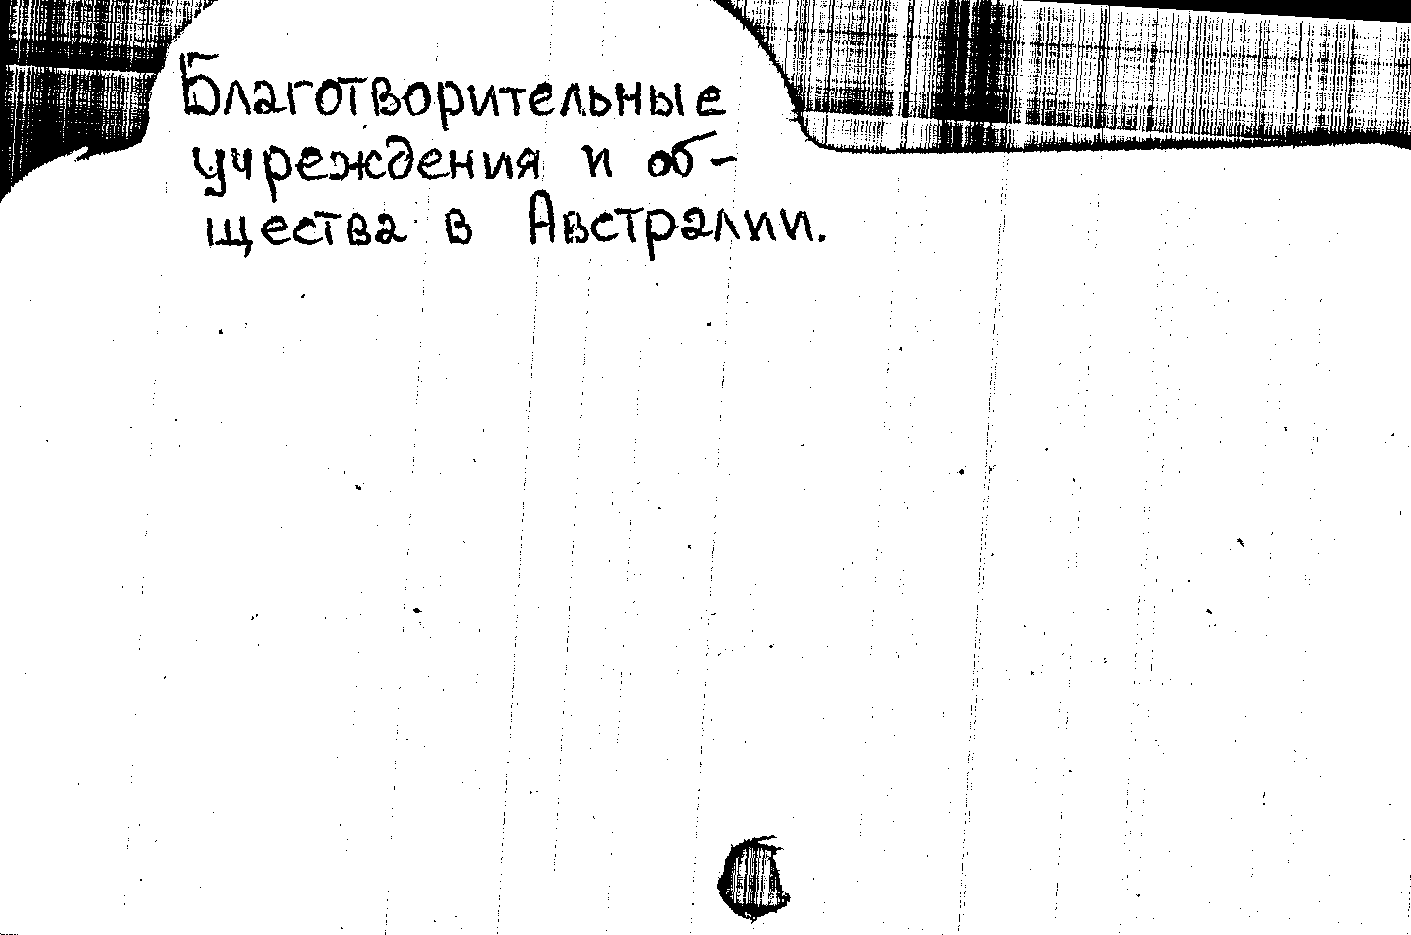 Благотворительные
учреждения и об-
щества в Австралии.